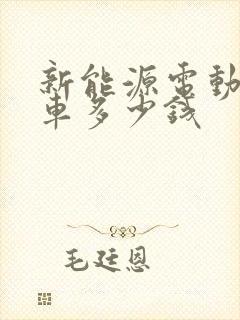 新能源電動
車多少錢
毛廷恩